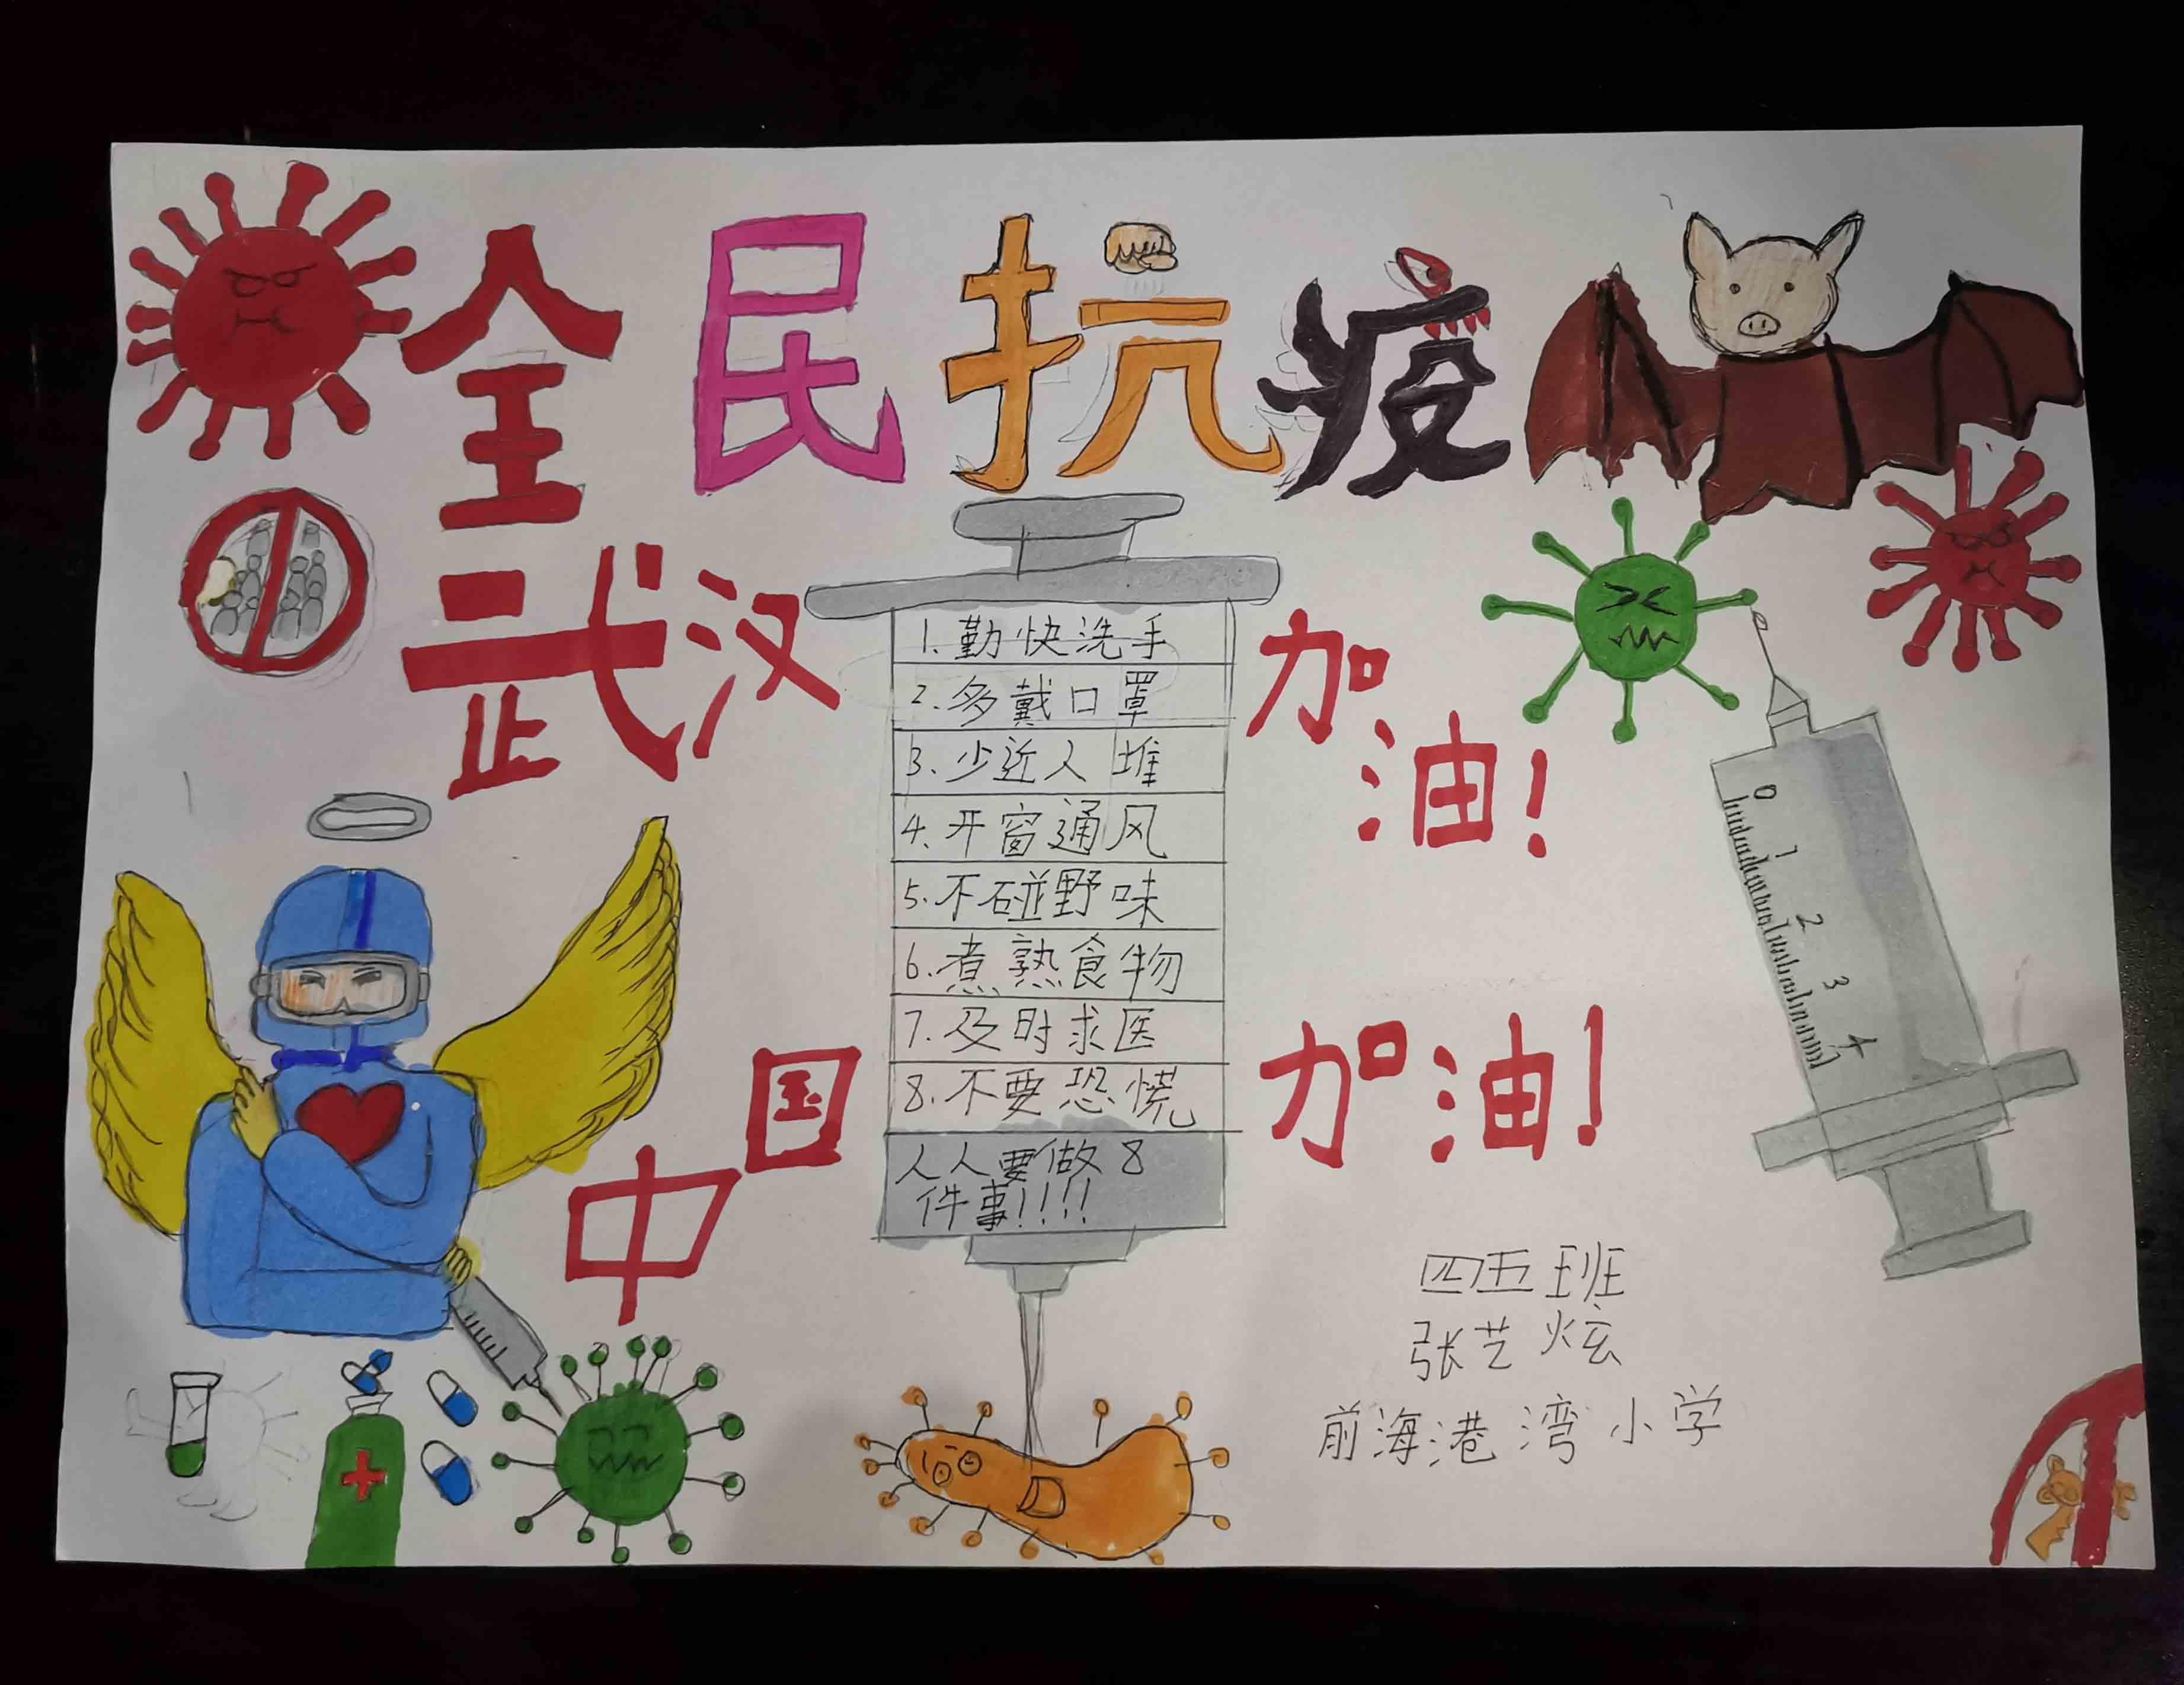 全民抗疫
武汉加油!
1.勤快洗手
2.多戴口罩
3.少近人堆
4.开窗通风
5.不碰野味
6.煮熟食物
7.及时求医
8.不要恐慌
人人要做8
件事!!!!
中国加油!
0
1
2
3
4
四五班
张艺炫
前海港湾小学